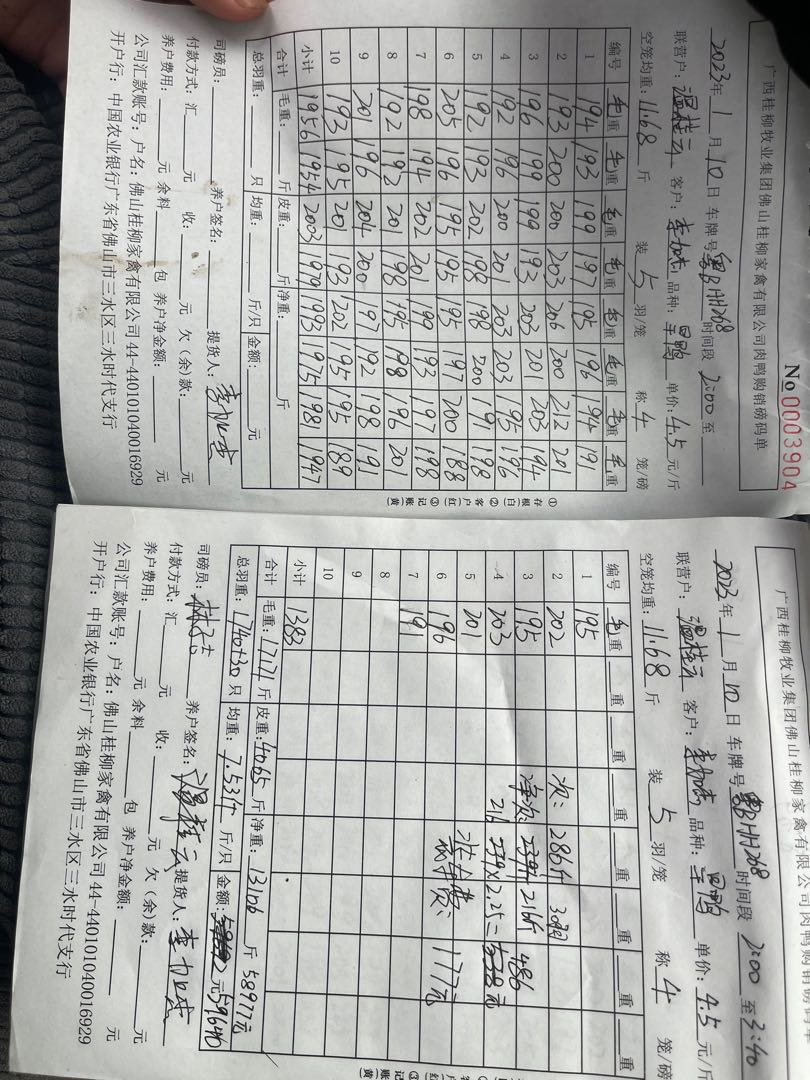 广西桂柳牧业集团佛山桂柳家禽有限公司肉鸭购销磅码单
No 0003904
2023年 1 月 10 日 车牌号 粤BHH268 时间段 2:00 至
联营户: 温桂云 客户: 李加杰 品种: 单价: 4.5 元/斤
空笼均重: 11.68 斤 装 5 羽/笼 称 4 笼/磅
编号 毛重 毛重 毛重 毛重 毛重 毛重 毛重 毛重
1 194 193 199 197 195 196 194 191
2 193 200 200 203 206 200 212 201
3 196 199 199 193 203 201 203 194
4 192 196 200 201 203 203 195 196
5 192 193 202 198 198 200 191 198
6 205 196 195 195 195 197 200 188
7 198 194 202 201 199 193 197 198
8 192 193 201 198 195 198 196 201
9 201 196 204 200 197 192 198 191
10 193 195 201 193 202 195 195 189
小计 1956 1954 2003 1979 1993 1975 1981 1947
合计 毛重: 斤 皮重: 斤 净重: 斤
总羽重: 只 均重: 斤/只 金额: 元
司磅员: 养户签名: 提货人: 李加杰
付款方式: 汇 元 收: 元 欠(余)款: 元
养户费用: 元 余料 包 养户净金额: 元
公司汇款账号: 户名: 佛山桂柳家禽有限公司 44-440101040016929
开户行: 中国农业银行广东省佛山市三水区三水时代支行
①存根(白) ②客户(红) ③记账(黄)
广西桂柳牧业集团佛山桂柳家禽有限公司肉鸭购销磅码单
2023年 1 月 10 日 车牌号 粤BHH268 时间段 2:00 至 3:40
联营户: 温桂云 客户: 李加杰 品种: 单价: 4.5 元/斤
空笼均重: 11.68 斤 装 5 羽/笼 称 4 笼/磅
编号 毛重 重 重 重 重 重 重 重
1 195
2 202 次: 286斤 30羽
3 195 净次: 216斤
4 203 216 ×2.25= 486元
5 201
6 196 过车费: 177元
7 191
8
9
10
小计 1383
合计 毛重: 17171 斤 皮重: 4065 斤 净重: 13106 斤 58977元
总羽重: 1740+30 只 均重: 7.53斤 斤/只 金额: 元 59640
司磅员: 养户签名: 温桂云 提货人: 李加杰
付款方式: 汇 元 收: 元 欠(余)款: 元
养户费用: 元 余料 包 养户净金额: 元
公司汇款账号: 户名: 佛山桂柳家禽有限公司 44-440101040016929
开户行: 中国农业银行广东省佛山市三水区三水时代支行